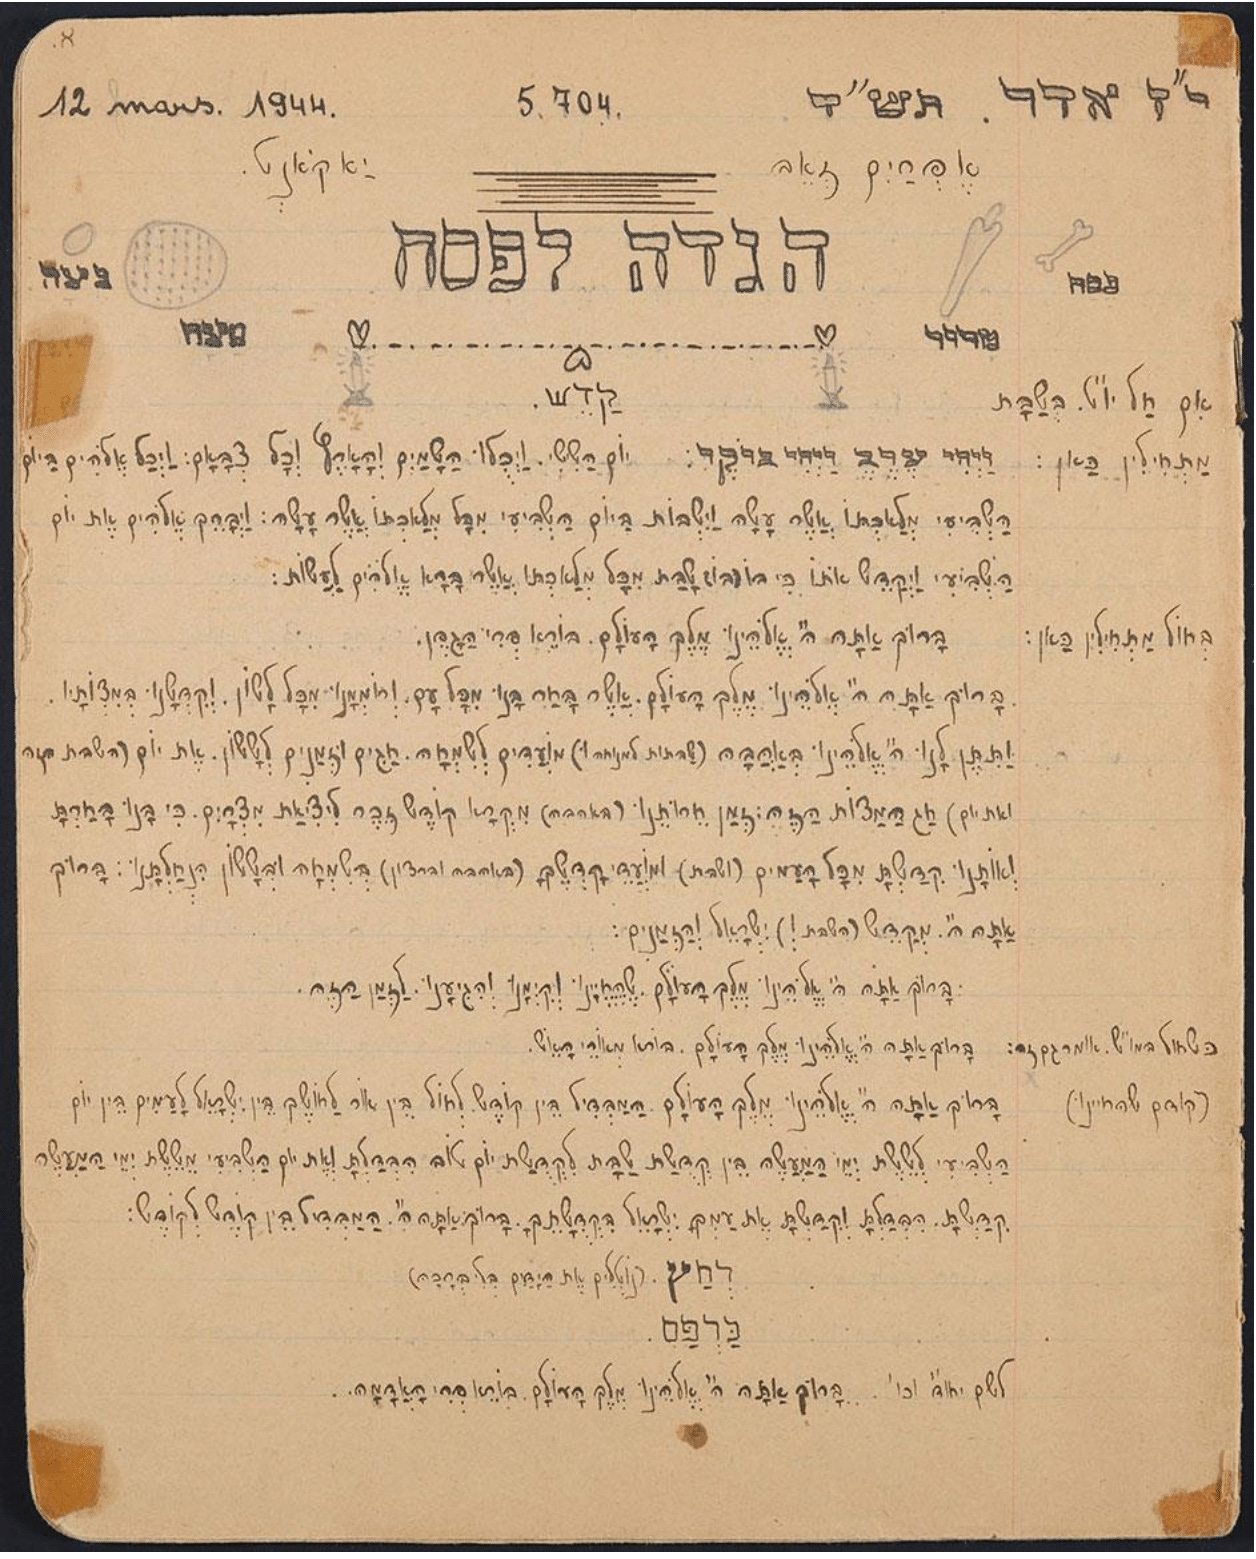 א.
י"ז אדר. תש"ד 5.704. 12 mars. 1944.
אֶפְרַיִם זְאֵב יַאקאָנְט.
הגדה לפסח
פסח
ביצה
מרור
מצה
קַדֵש.
אִם חַל יו"ט. בְּשַבָּת
מַתְחִילִין כַּאן: וַיְהִי עֶרֶב וַיְהִי בוֹקֶר: יוֹם הַשִשִי. וַיְכֻלוּ הַשָמַיִם וְהָאָרֶץ וְכָל צְבָאָם: וַיְכַל אֱלֹהִים בַּיוֹם
הַשְבִיעִי מְלַאכְתּוֹ אֲשֶר עָשָה וַיִשְבּוֹת בַּיוֹם הַשְבִיעִי מִכָּל מְלַאכְתּוֹ אֲשֶר עָשָה: וַיְבָרֵךְ אֱלֹהִים אֶת יוֹם
הַשְבִיעִי וַיְקַדֵש אוֹתוֹ כִּי בוֹ שָבַת מִכָּל מְלַאכְתּוֹ אֲשֶר בָּרָא אֱלֹהִים לַעֲשוֹת:
בְּחוֹל מַתְחִילִין כַּאן: בָּרוּךְ אַתָּה ה" אֱלֹהֵינוּ מֶלֶךְ הָעוֹלָם. בּוֹרֵא פְּרִי הַגֶפֶן.
בָּרוּךְ אַתָּה ה" אֱלֹהֵינוּ מֶלֶךְ הָעוֹלָם. אֲשֶר בָּחַר בָּנוּ מִכָּל עָם. וְרוֹמְמָנוּ מִכָּל לָשוֹן. וְקִדְשָנוּ בְּמִצְוֹתָיו.
וַתִּתֶּן לָנוּ ה" אֱלֹהֵינוּ בְּאַהֲבָה (שבתות למנוחה ו) מוֹעֲדִים לְשִמְחָה. חַגִים וּזְמַנִים לְשָשוֹן. אֶת יוֹם (השבת הזה
ואת יום) חַג הַמַצוֹת הַזֶה: זְמַן חֵרוּתֵנוּ (באהבה) מִקְרָא קוֹדֶש זֵכֶר לִיצִיאַת מִצְרָיִם. כִּי בָנוּ בָחַרְתָּ
וְאוֹתָנוּ קִדַשְתָּ מִכָּל הָעַמִים (ושבת) וּמוֹעֲדֵי קָדְשֶךָ (באהבה וברצון) בְּשִמְחָה וּבְשָשוֹן הִנְחַלְתָּנוּ: בָּרוּךְ
אַתָּה ה". מְקַדֵש (השבת ו) יִשְרָאֵל וְהַזְמַנִים:
בָּרוּךְ אַתָּה ה" אֱלֹהֵינוּ מֶלֶךְ הָעוֹלָם. שֶהֶחֱיָינוּ וְקִיְמָנוּ וְהִגִיעָנוּ. לַזְמַן הַזֶה.
כשחול במו"ש. אומר גם זה: בָּרוּךְ אַתָּה ה" אֱלֹהֵינוּ מֶלֶךְ הָעוֹלָם. בּוֹרֵא מְאוֹרֵי הָאֵש.
(קודם שהחיינו) בָּרוּךְ אַתָּה ה" אֱלֹהֵינוּ מֶלֶךְ הָעוֹלָם. הַמַבְדִיל בֵּין קוֹדֶש לְחוֹל בֵּין אוֹר לַחוֹשֶךְ בֵּין יִשְרָאֵל לָעַמִים בֵּין יוֹם
הַשְבִיעִי לְשֵשֶת יְמֵי הַמַעֲשֶה בֵּין קְדֻשַת שַבָּת לִקְדֻשַת יוֹם טוֹב הִבְדַלְתָּ וְאֶת יוֹם הַשְבִיעִי מִשֵשֶת יְמֵי הַמַעֲשֶה
קִדַשְתָּ. הִבְדַלְתָּ וְקִדַשְתָּ אֶת עַמְךָ יִשְרָאֵל בִּקְדֻשָתֶךָ. בָּרוּךְ אַתָּה ה". הַמַבְדִיל בֵּין קוֹדֶש לְקוֹדֶש:
רְחַץ. (נוֹטְלִים אֶת הַיָדַיִם בְּלִי בְּרָכָה)
כַּרְפַּס.
לשם יחוד" וכו'. בָּרוּךְ אַתָּה ה" אֱלֹהֵינוּ מֶלֶךְ הָעוֹלָם. בּוֹרֵא פְּרִי הָאֲדָמָה.